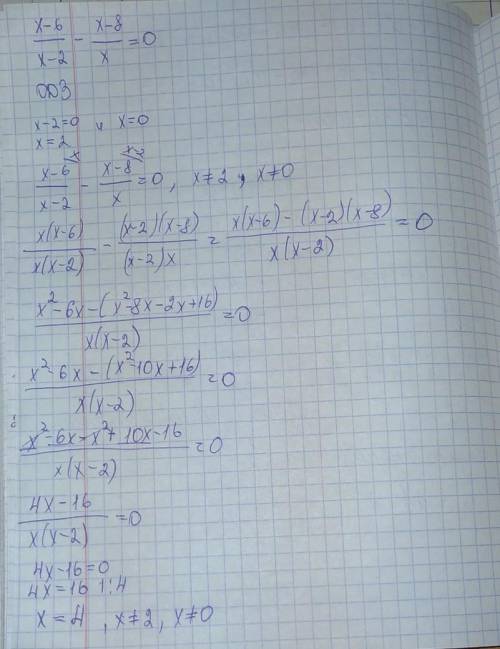 (x-6)/(x-2) - (x-8)/x = 0
ОДЗ
x-2=0 и x=0
x=2
(x-6)/(x-2) - (x-8)/x = 0, x≠2, x≠0
x(x-6)/(x(x-2)) - (x-2)(x-8)/((x-2)x) = (x(x-6) - (x-2)(x-8))/(x(x-2)) = 0
(x²-6x-(x²-8x-2x+16))/(x(x-2)) = 0
(x²-6x-(x²-10x+16))/(x(x-2)) = 0
(x²-6x-x²+10x-16)/(x(x-2)) = 0
(4x-16)/(x(x-2)) = 0
4x-16=0
4x=16 |:4
x=4, x≠2, x≠0